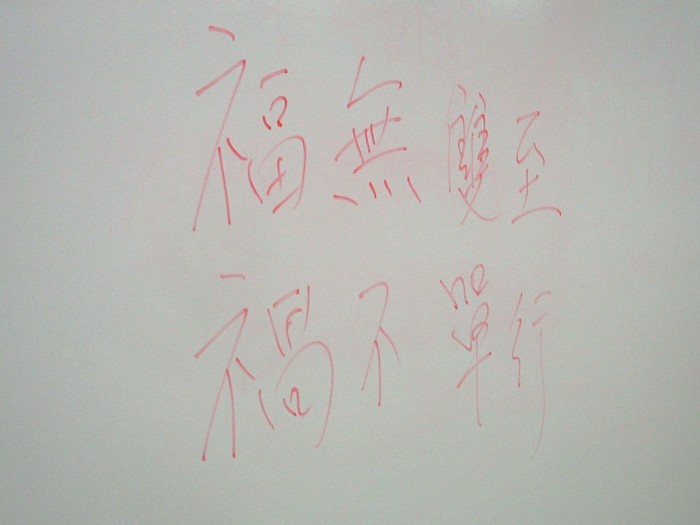 福無雙至
禍不單行